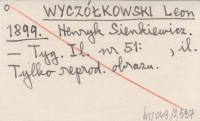 WYCZÓŁKOWSKI Leon
1899. Henryk Sienkiewicz.
— Tyg. Il. nr 51: , il.
Tylko reprod. obrazu.